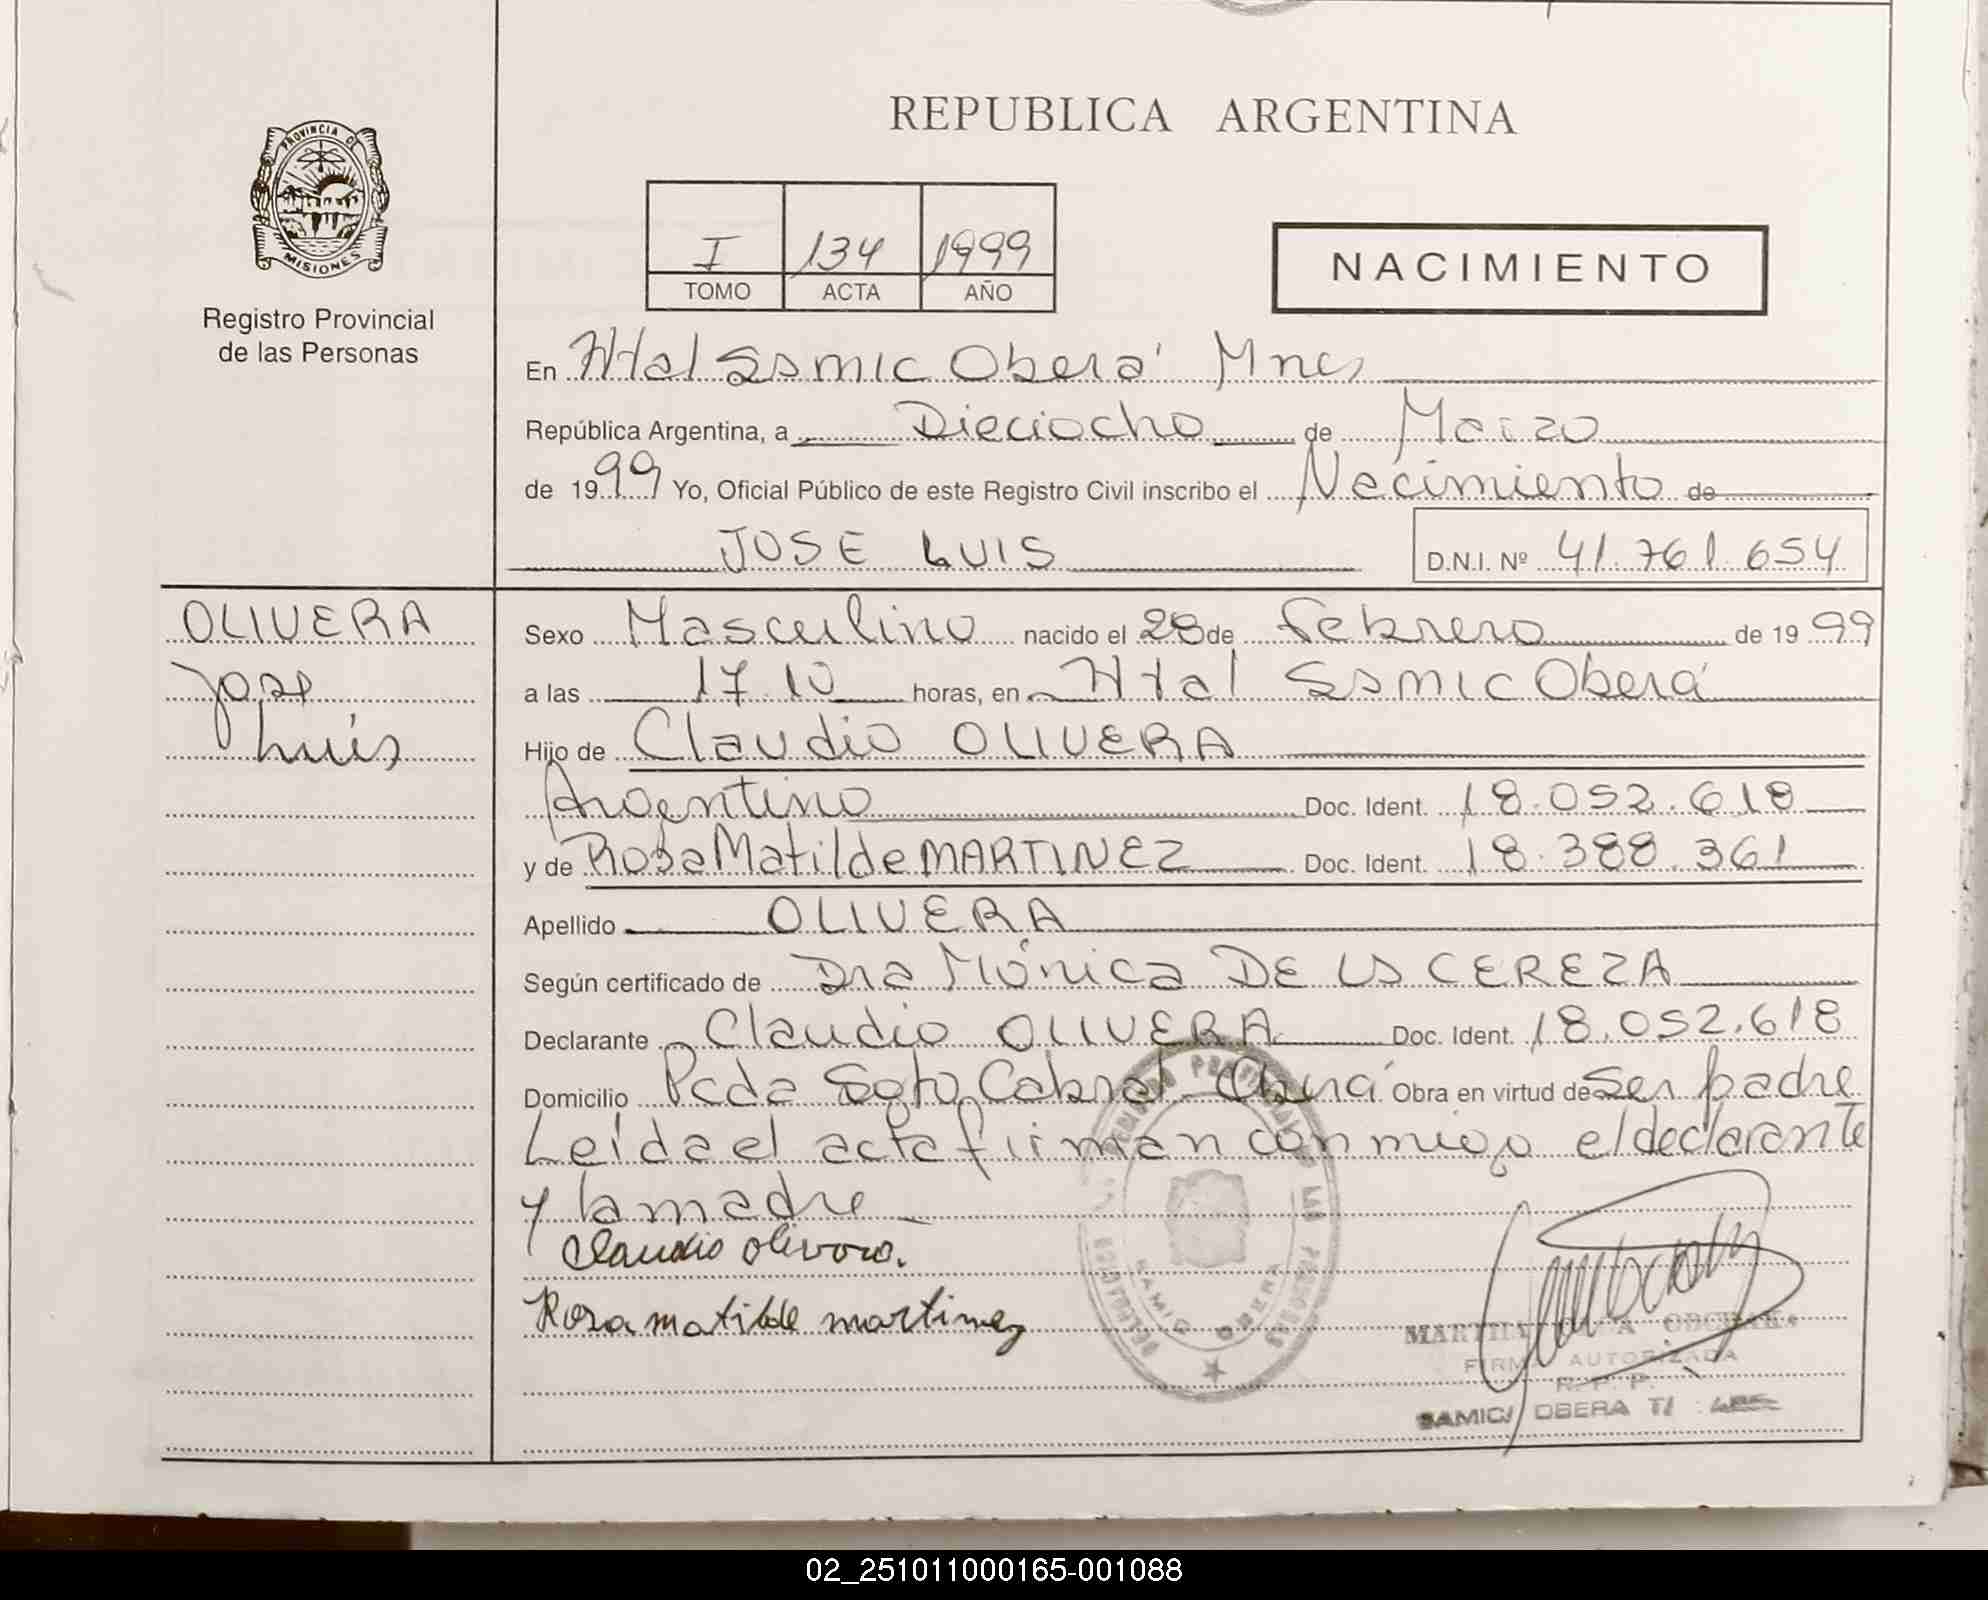 PROVINCIA DE
MISIONES
Registro Provincial
de las Personas
REPUBLICA ARGENTINA
I 134 1999
TOMO ACTA AÑO
NACIMIENTO
En Htal Ssmic Oberá Mnes
República Argentina, a Dieciocho de Marzo
de 1999 Yo, Oficial Público de este Registro Civil inscribo el Nacimiento de
JOSE LUIS D.N.I. Nº 41.761.654
OLIVERA
Jose
Luis
Sexo Masculino nacido el 28 de Febrero de 1999
a las 17.10 horas, en Htal Ssmic Oberá
Hijo de Claudio OLIVERA
Argentino Doc. Ident. 18.052.618
y de Rosa Matilde MARTINEZ Doc. Ident. 18.388.361
Apellido OLIVERA
Según certificado de Dra Mónica DE LA CEREZA
Declarante Claudio OLIVERA Doc. Ident. 18.052.618
Domicilio Pcda Soto Cabral Oberá Obra en virtud de ser padre
Leída el acta firman conmigo el declarante
y la madre
Claudio olivera.
Rosa matilde martinez
LAS PERSONAS
SAMIC OBERA
FIRMA AUTORIZADA
R. P. P.
SAMIC/ OBERA
02_251011000165-001088